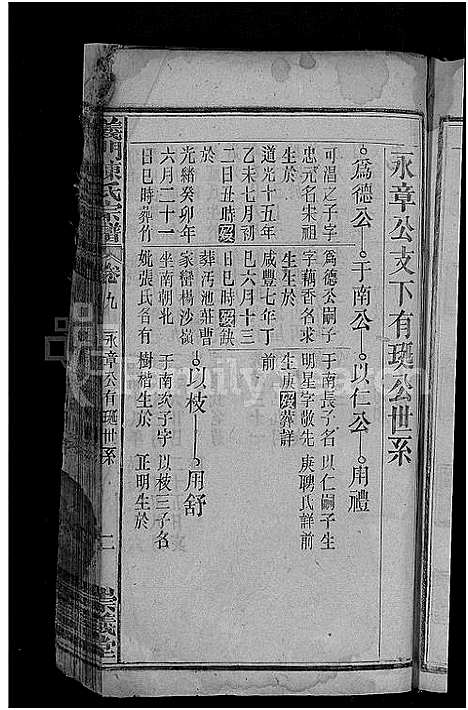 永章公支下有珽公世系
為德公 于南公 以仁公 用禮
可湒之子字 為德公嗣子 于南長子名 以仁嗣子生
忠元名朱祖 字藕香名求 明星字敬先 庚聘氏詳前
生於 生於 生庚歿葬詳
道光十五年 咸豐七年丁 前
乙未七月初 巳六月十三
二日丑時歿 日巳時歿
於 葬汚池莊曹 以枝 用舒
光緒癸卯年 家巒楊沙嶺
六月二十一 坐南朝北 于南次子字 以枝三子名
日巳時葬竹 娩張氏名有 樹楷生於 正明生於
義門陳氏宗譜 卷九 永章公有珽世系 二 崇義堂